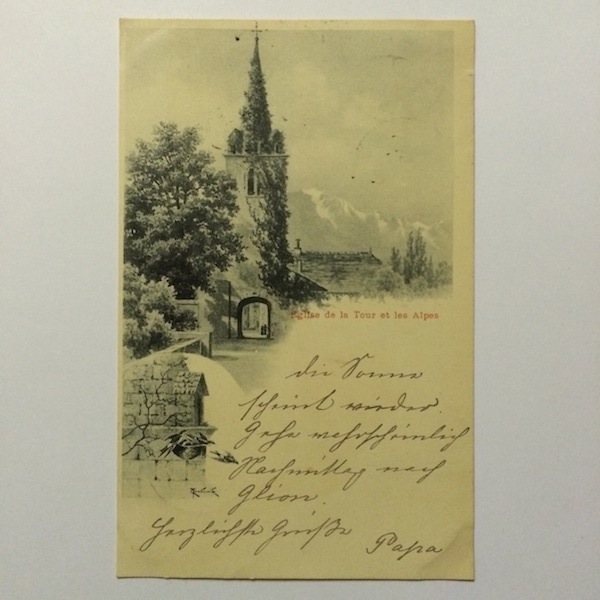 Eglise de la Tour et les Alpes
die Sonne
scheint wieder.
Gehe wahrscheinlich
Nachmittag nach
Glion.
Herzlichste Grüße
Papa